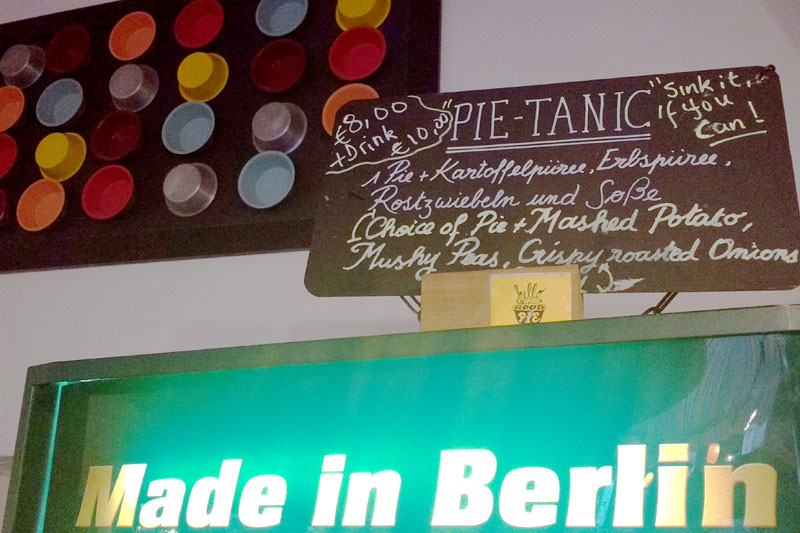 €8,00
+Drink
€10,00
"PIE-TANIC"
"Sink it,
if you
can!
1 Pie + Kartoffelpüree, Erbspüree,
Rostzwiebeln und Soße
(Choice of Pie + Mashed Potato,
Mushy Peas, Crispy roasted Onions
hello
GOOD
PIE
Made in Berlin